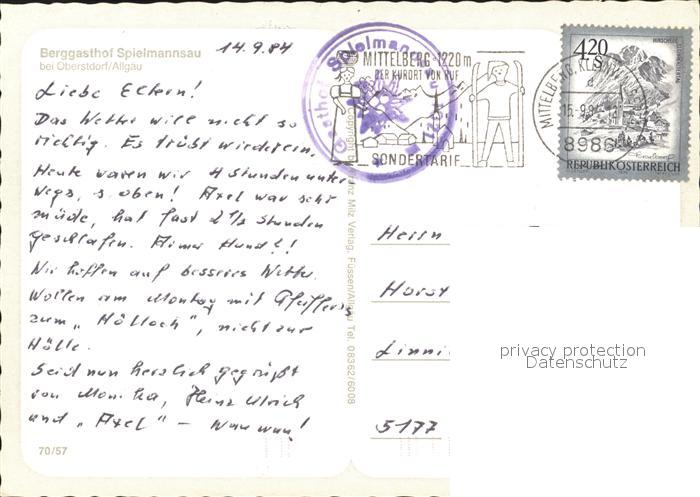 Berggasthof Spielmannsau
bei Oberstdorf/Allgäu
14.9.84
Liebe Eltern!
Das Wetter will nicht so
richtig. Es trübt wiederein.
Heute waren wir 4 Stunden unter
wegs, s. oben! Axel war sehr
müde, hat fast 2 1/2 Stunden
geschlafen. Armer Hund!!
Wir hoffen auf besseres Wetter.
Wollen am Montag mit Pfeiffers
zum "Hölloch", nicht zur
Hölle.
Seid nun herzlich gegrüßt
von Monika, Heinz Ulrich
und "Axel" - Wau wau!
70/57
Milz Verlag, Füssen/Allgäu Tel. 08362/6008
MITTELBERG 1220 m
DER KURORT VON RUF
SONDERTARIF
MITTELBERG, KLEINWALSERTAL
8986
4.20
S
REPUBLIK ÖSTERREICH
Herrn
Horst
Linni
5177
privacy protection
Datenschutz